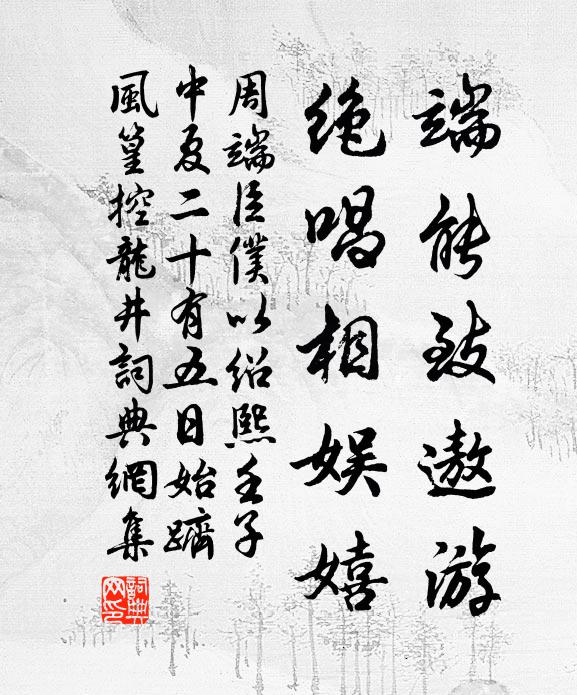 端能致遨游
绝唱相娱嬉
周端臣僕以绍熙壬子
中夏二十有五日始躋
風篁控龍井詞典網集
詞典网印